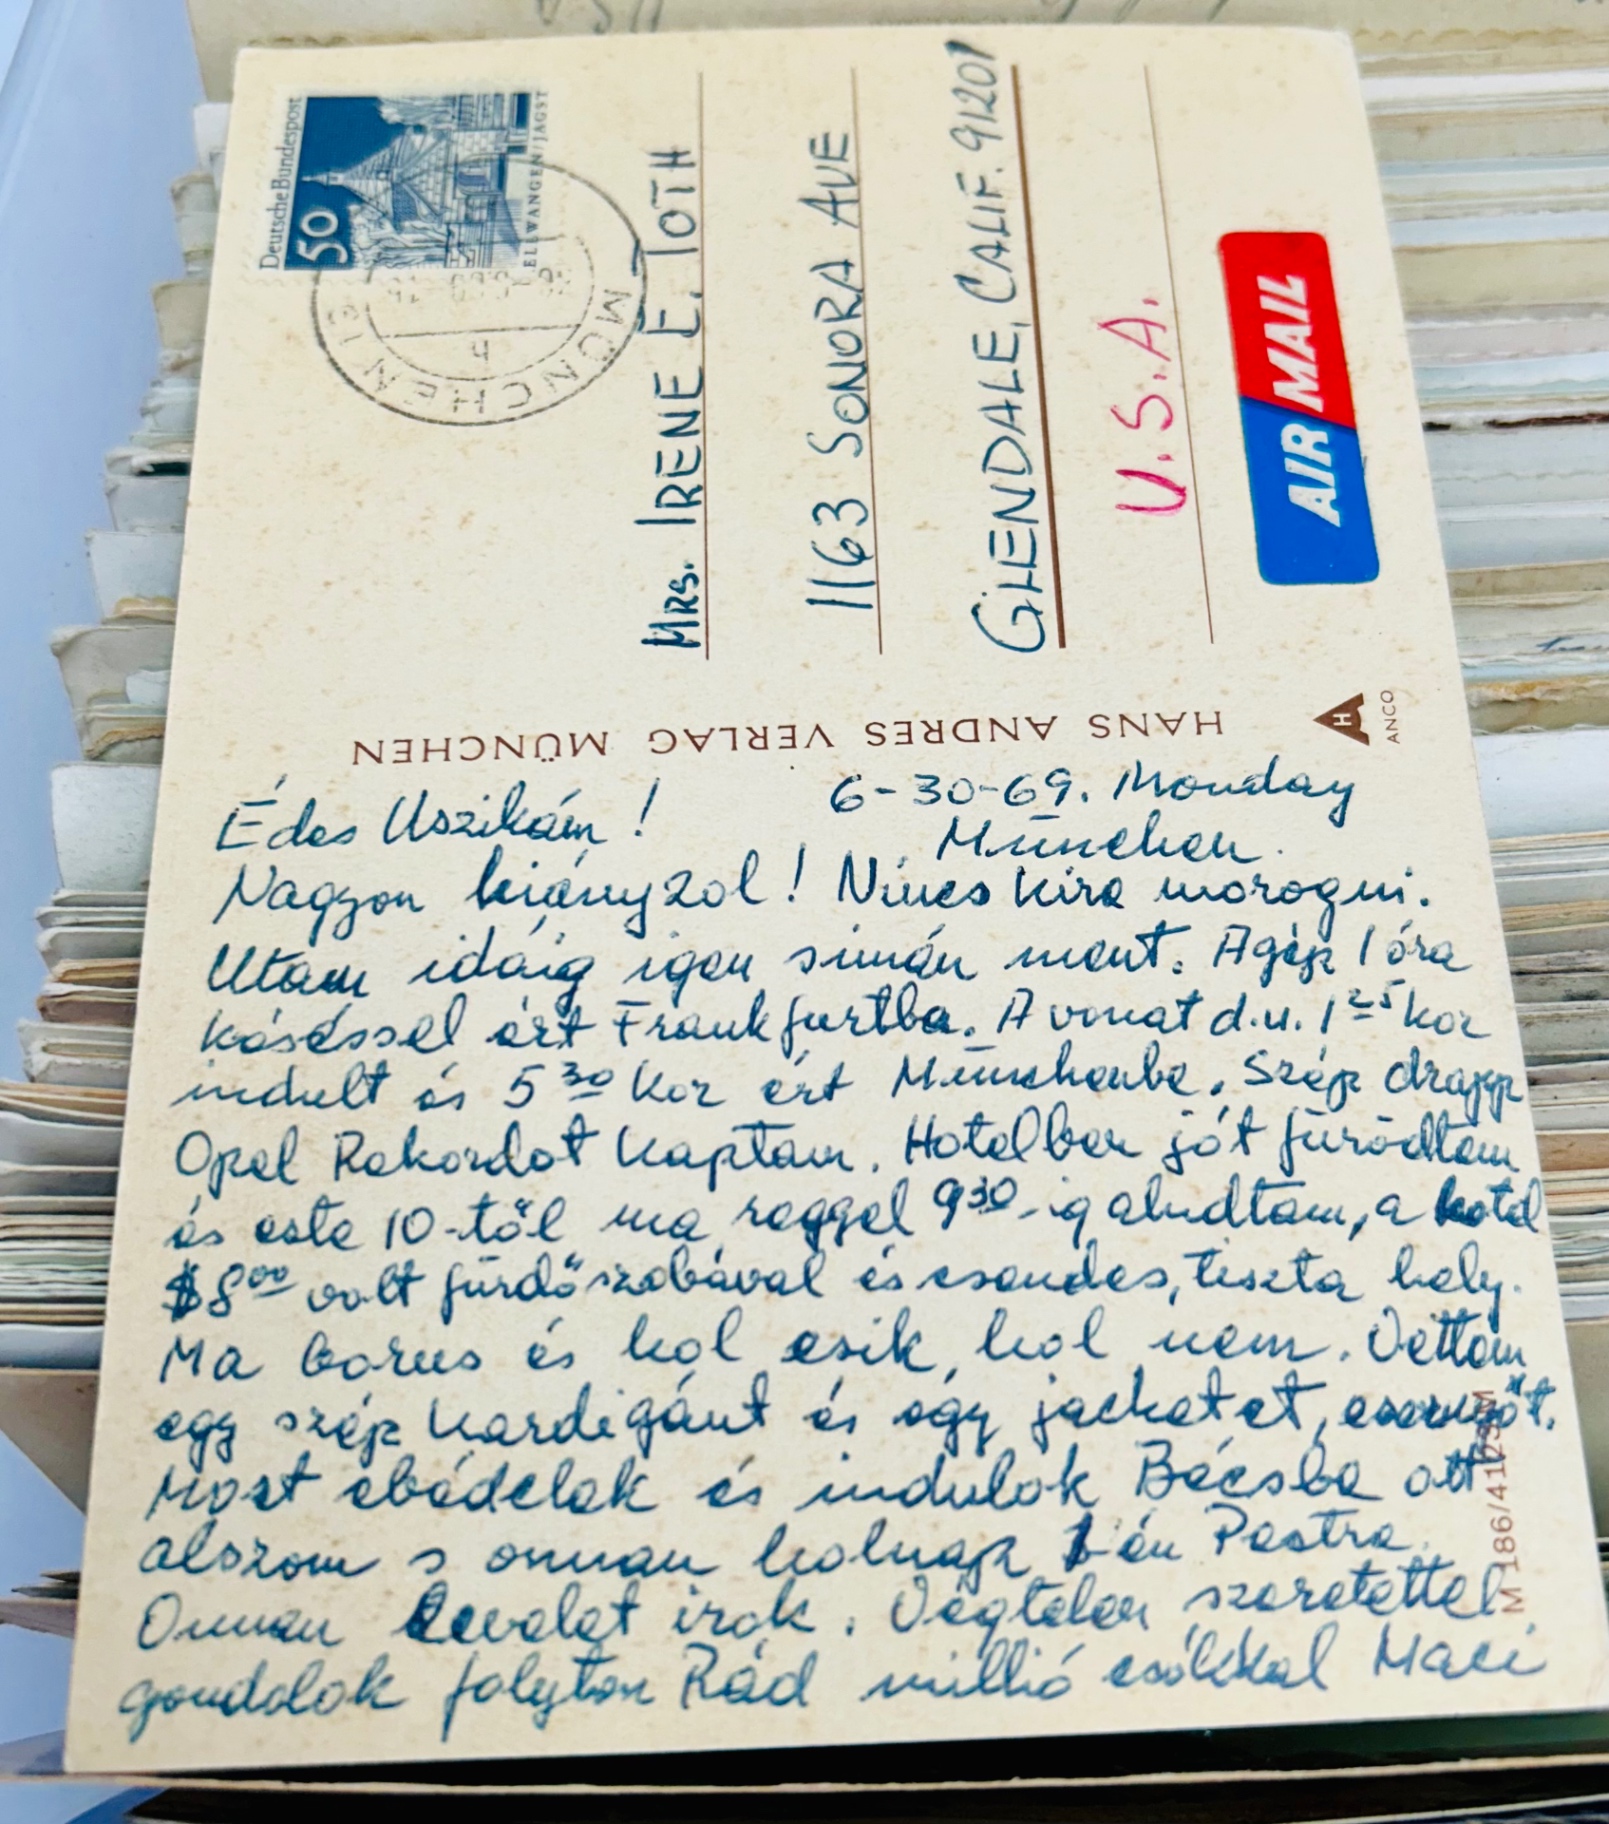 Deutsche Bundespost
50
ELLWANGEN/JAGST
MÜNCHEN
h
Mrs. IRENE E. TOTH
1163 SONORA AVE
GLENDALE, CALIF. 91201
U.S.A.
AIR MAIL
HANS ANDRES VERLAG MÜNCHEN
H
ANCO
Édes Uszikám! 6-30-69. Monday
München.
Nagyon hiányzol! Nincs kire morogni.
Utam idáig igen simán ment. A gép 1 óra
késéssel ért Frankfurtba. A vonat d.u. 1 25 kor
indult és 5 30 kor ért Münchenbe. Szép drapp
Opel Rekordot kaptam. Hotelben jót fürödtem
és este 10-től ma reggel 9 30-ig aludtam, a hotel
$8 00 volt fürdőszobával és csendes, tiszta hely.
Ma borus és hol esik, hol nem. Vettem
egy szép kardigánt és egy jacketet, esernyőt.
Most ebédelek és indulok Bécsbe ott
alszom s onnan holnap 1-én Pestre.
Onnan levelet irok. Végtelen szeretettel
gondolok folyton Rád millió csókkal Maci
M 186/41